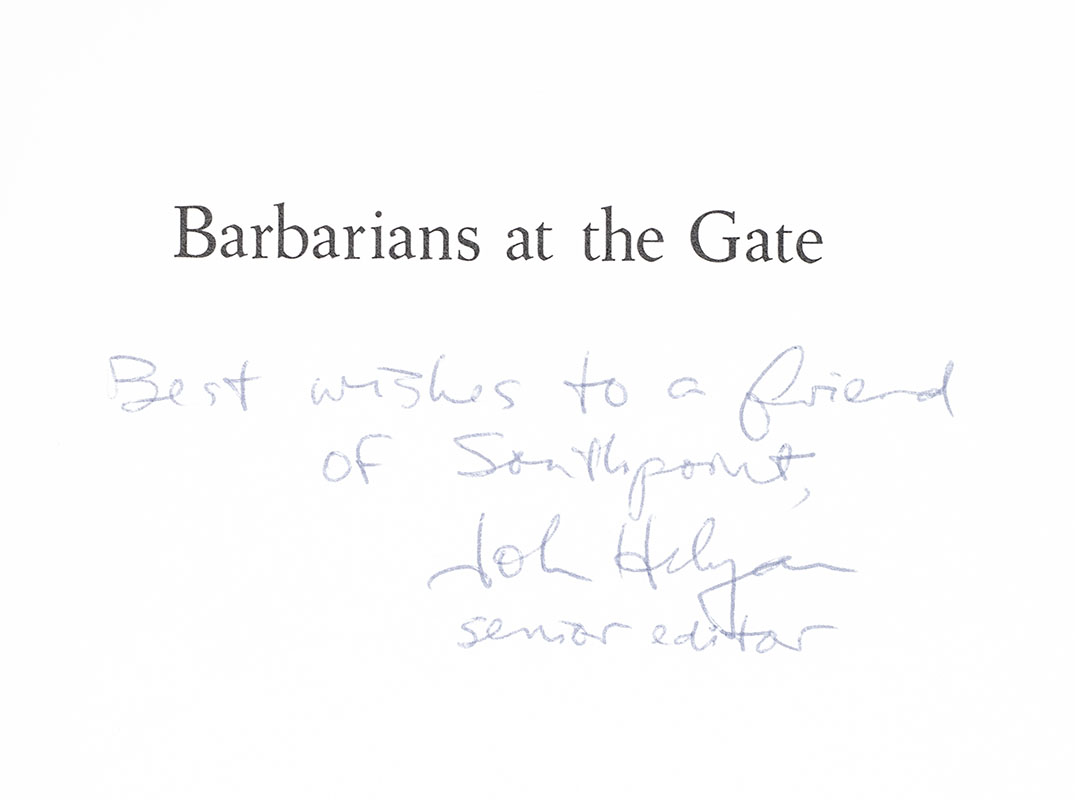 Barbarians at the Gate
Best wishes to a friend
of Southpoint,
John Helyar
senior editor